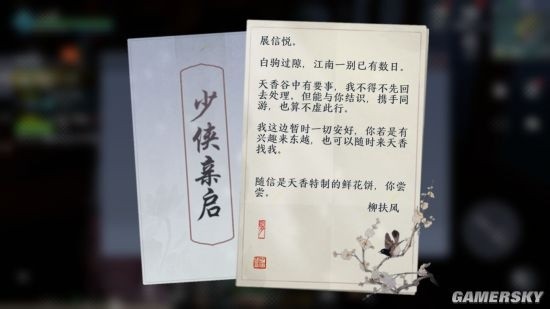 少侠亲启
展信悦。
白驹过隙，江南一别已有数日。
天香谷中有要事，我不得不先回
去处理，但能与你结识，携手同
游，也算不虚此行。
我这边暂时一切安好，你若是有
兴趣来东越，也可以随时来天香
找我。
随信是天香特制的鲜花饼，你尝
尝。
柳扶风
GAMERSKY